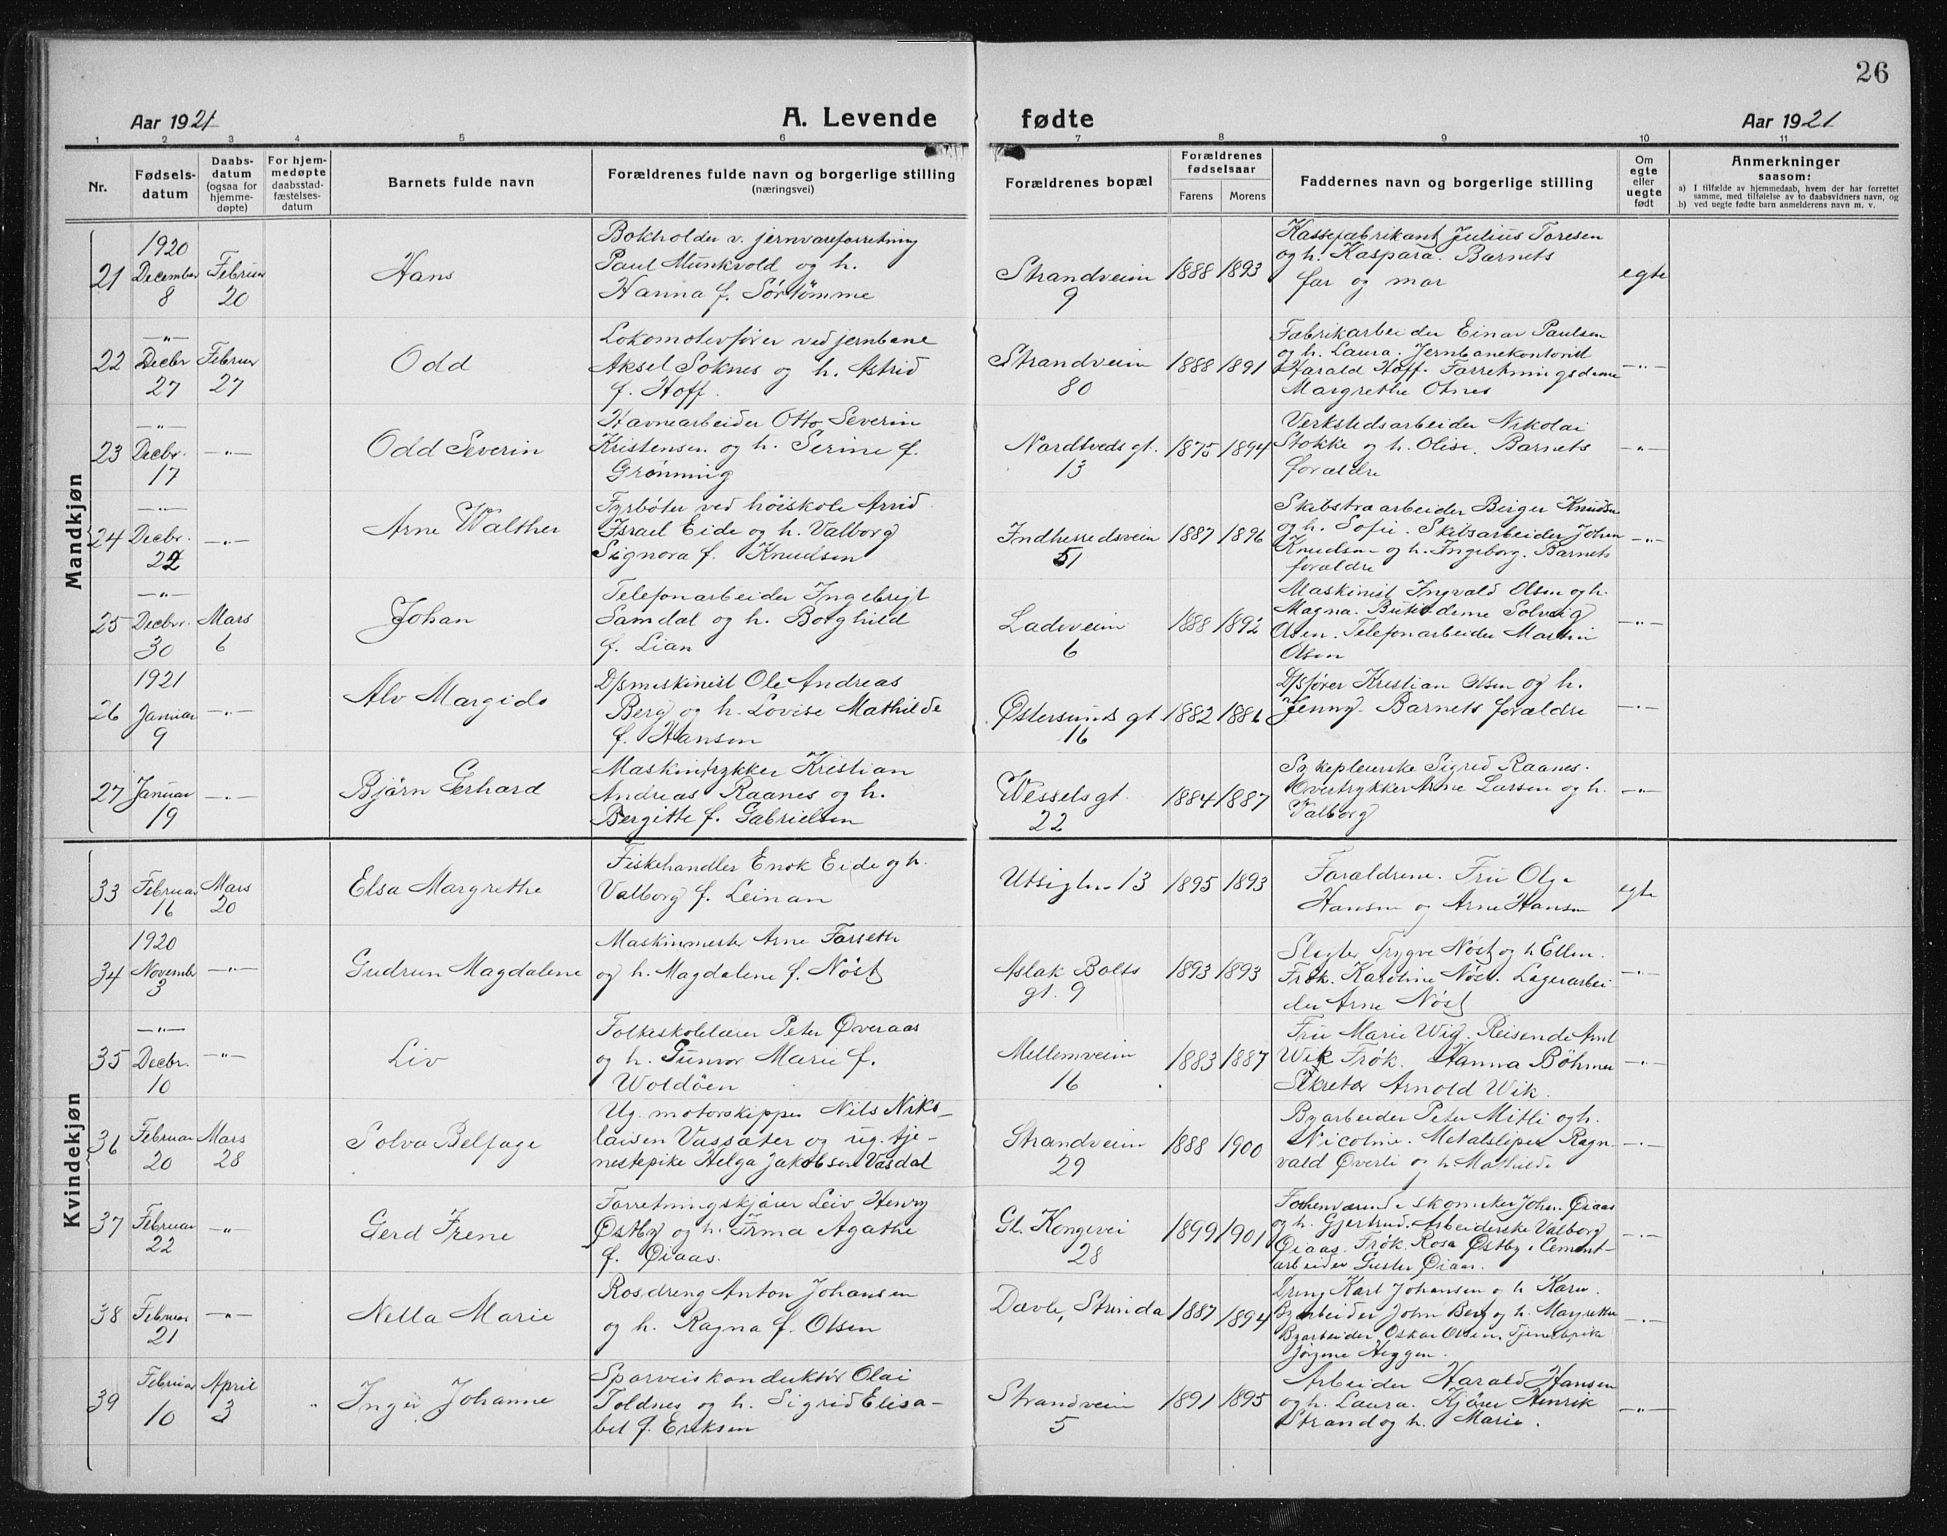 26
Aar 1921
A. Levende
fødte
Aar 1921
1 2 3 4 5 6 7 8 9 10 11
Nr.
Fødsels-
datum
Daabs-
datum
(ogsaa for
hjemme-
døpte)
For hjem-
medøpte
daabsstad-
fæstelses-
datum
Barnets fulde navn
Forældrenes fulde navn og borgerlige stilling
(næringsvei)
Forældrenes bopæl
Forældrenes
fødselsaar
Farens
Morens
Faddernes navn og borgerlige stilling
Om
egte
eller
uegte
født
Anmerkninger
saasom:
a) I tilfælde av hjemmedaab, hvem der har forrettet
samme, med tilføielse av to daabsvidners navn, og
b) ved uegte fødte barn anmelderens navn m. v.
Mandkjøn
21
1920
December
8
Februar
20
Hans
Bokholder v. jernvareforretning
Paul Munkvold og h.
Hanna f. Sørtømme
Strandveien
9
1888 1893
Kassefabrikant Julius Toresen
og h. Kaspara. Barnets
far og mor
egte
22
—"—
Decbr
27
Februar
27
Odd
Lokomotivfører ved jernbane
Aksel Soknes og h. Astrid
f. Hoff.
Strandveien
80
1888 1891
Fabrikarbeider Einar Paulsen
og h. Laura. Jernbanekontorist
Harald Hoff. Forretningsdame
Margrethe Otnes
—"—
23
—"—
Decbr.
17
—"—
Odd Severin
Havnearbeider Otto Severin
Kristensen og h. Serine f.
Grønning
Nardtveds gt.
13
1875 1894
Verkstedsarbeider Nikolai
Stokke og h. Olise. Barnets
forældre
—"—
24
—"—
Decbr.
22
—"—
Arne Walther
Fyrbøter ved høiskole Arvid
Israel Eide og h. Valborg
Signora f. Knudsen
Indherredsveien
51
1887 1896
Skibstraarbeider Birger Knudsen
og h. Sofie. Skibsarbeider Johan
Knudsen og h. Ingeborg. Barnets
forældre
—"—
25
—"—
Decbr.
30
Mars
6
Johan
Telefonarbeider Ingebrigt
Samdal og h. Borghild
f. Lian
Ladeveien
6
1888 1892
Maskinist Ingvald Olsen og h.
Magna. Butikdame Solveig
Olsen. Telefonarbeider Martin
Olsen
—"—
26
1921
Januar
9
—"—
Alv Margido
D/smaskinist Ole Andreas
Berg og h. Lovise Mathilde
f. Hansen
Østersunds gt
16
1882 1886
D/sfører Kristian Olsen og h.
Jenny. Barnets forældre
—"—
27
Januar
19
—"—
Bjørn Gerhard
Maskintrykker Kristian
Andreas Raanes og h.
Bergitte f. Gabrielsen
Wessels gt.
22
1884 1887
Sykepleierske Sigrid Raanes.
Overtrykker Arne Larsen og h.
Valborg
—"—
Kvindekjøn
33
Februar
16
Mars
20
Elsa Margrethe
Fiskehandler Enok Eide og h.
Valborg f. Leinan
Utsigten 13
1895 1893
Forældrene. Fru Olga
Hansen og Arne Hansen
egte
34
1920
Novembr
3
—"—
Gudrun Magdalene
Maskinmester Arne Forseth
og h. Magdalene f. Nøst
Aslak Bolts
gt. 9
1893 1893
Slagter Trygve Nøst og h Ellen.
Frøk. Karoline Nøst. Lagerarbei
der Arne Nøst
—"—
35
—"—
Decbr.
10
—"—
Liv
Folkeskolelærer Peter Øveraas
og h. Gunvor Marie f.
Woldøen
Mellemveien
16
1883 1887
Fru Marie Wig. Reisende Arnt
Wik Frøk. Hanna Böhmer
Sekretær Arnold Wik.
—"—
36
Februar
20
Mars
28
Solva Belfage
Ug. motorskipper Nils Niko-
laisen Vassæter og ug. tje-
nestepike Helga Jakobsen Vasdal
Strandveien
29
1888 1900
Byarbeider Peter Mitli og h.
Nicoline. Metalsliper Ragn
vald Øverli og h. Mathilde
—"—
37
Februar
22
—"—
Gerd Irene
Forretningskjører Leiv Henry
Østby og h. Irma Agathe
f. Øiaas.
Gl. Kongevei
28
1899 1901
Forhenværende skomaker Johan Øiaas
og h. Gjertrud. Arbeiderske Valborg
Øiaas. Frøk. Rosa Østby. Cement-
arbeider Øiaas.
—"—
38
Februar
21
—"—
Nella Marie
Rosdreng Anton Johansen
og h. Ragna f. Olsen
Dævle, Strinda
1887 1894
Dreng Karl Johansen og h Karen.
Byarbeider John Berg og h. Margrethe
Byarbeider Oskar Olsen. Tjenestepike
Jørgine Heggen.
—"—
39
Februar
10
April
3
Inger Johanne
Sporveiskonduktør Olai
Toldnes og h. Sigrid Elisa-
bet f. Eriksen
Strandveien
5
1891 1895
Arbeider Harald Hansen
og h. Laura. Kjører Henrik
Strand og h. Marie.
—"—